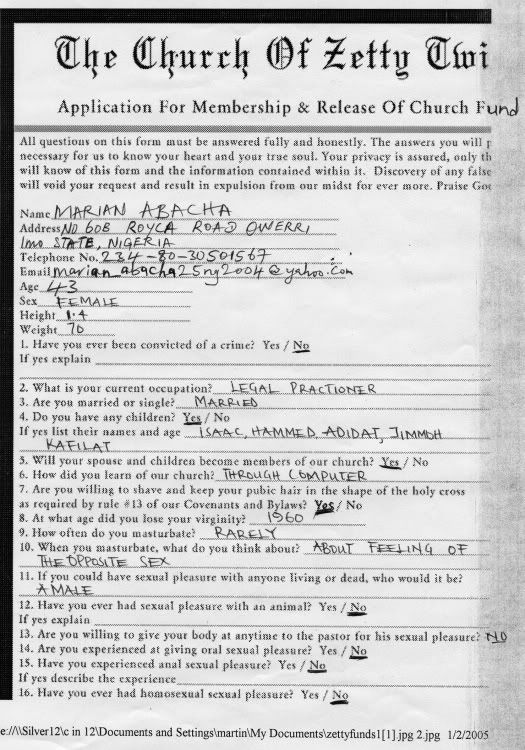 The Church Of Zetty Twi
Application For Membership & Release Of Church Fund
All questions on this form must be answered fully and honestly. The answers you will p
necessary for us to know your heart and your true soul. Your privacy is assured, only th
will know of this form and the information contained within it. Discovery of any false
will void your request and result in expulsion from our midst for ever more. Praise Go
Name MARIAN ABACHA
Address NO 60B ROYCA ROAD OWERRI
IMO STATE, NIGERIA
Telephone No. 234-80-30501567
Email marian_abacha25ng2004@yahoo.com
Age 43
Sex FEMALE
Height 1.4
Weight 70
1. Have you ever been convicted of a crime? Yes / No
If yes explain
2. What is your current occupation? LEGAL PRACTIONER
3. Are you married or single? MARRIED
4. Do you have any children? Yes / No
If yes list their names and age ISAAC, HAMMED, ADIDAT, JIMMOH
KAFILAT
5. Will your spouse and children become members of our church? Yes / No
6. How did you learn of our church? THROUGH COMPUTER
7. Are you willing to shave and keep your pubic hair in the shape of the holy cross
as required by rule #13 of our Covenants and Bylaws? Yes / No
8. At what age did you lose your virginity? 1960
9. How often do you masturbate? RARELY
10. When you masturbate, what do you think about? ABOUT FEELING OF
THE OPPOSITE SEX
11. If you could have sexual pleasure with anyone living or dead, who would it be?
A MALE
12. Have you ever had sexual pleasure with an animal? Yes / No
If yes explain
13. Are you willing to give your body at anytime to the pastor for his sexual pleasure? NO
14. Are you experienced at giving oral sexual pleasure? Yes / No
15. Have you experienced anal sexual pleasure? Yes / No
If yes describe the experience
16. Have you ever had homosexual sexual pleasure? Yes / No
e://\\Silver12\c in 12\Documents and Settings\martin\My Documents\zettyfunds1[1].jpg 2.jpg 1/2/2005